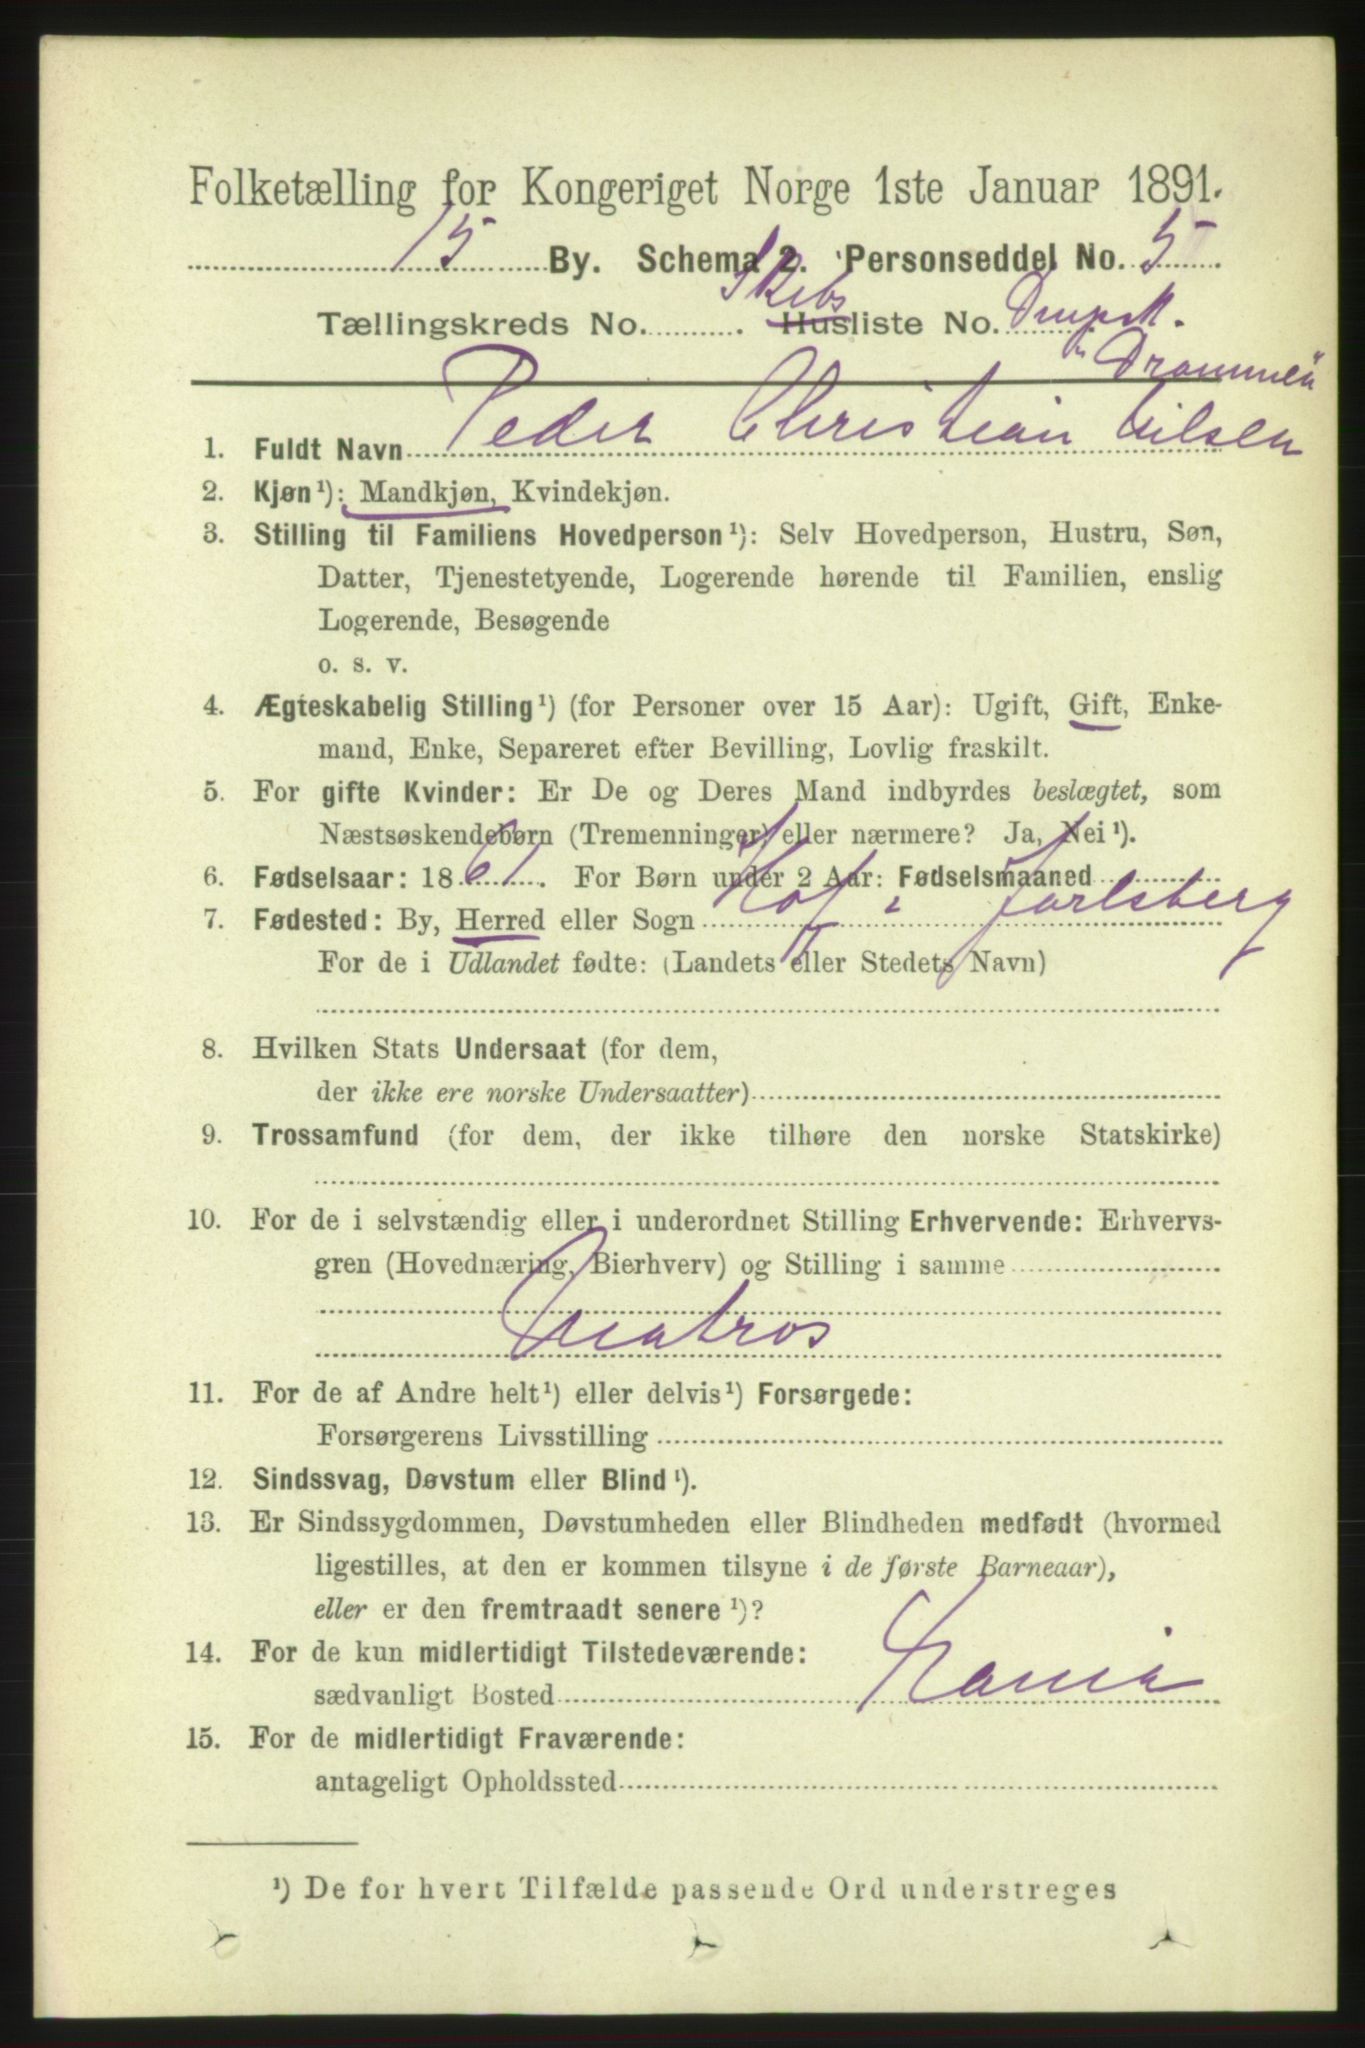 Folketælling for Kongeriget Norge 1ste Januar 1891.
15 By. Schema 2. Personseddel No. 5
Skibs
Tællingskreds No. Husliste No. Dmpsk.
"Drammen"
1. Fuldt Navn Peder Christian Nilsen
2. Kjøn¹): Mandkjøn, Kvindekjøn.
3. Stilling til Familiens Hovedperson¹): Selv Hovedperson, Hustru, Søn,
Datter, Tjenestetyende, Logerende hørende til Familien, enslig
Logerende, Besøgende
o. s. v.
4. Ægteskabelig Stilling¹) (for Personer over 15 Aar): Ugift, Gift, Enke-
mand, Enke, Separeret efter Bevilling, Lovlig fraskilt.
5. For gifte Kvinder: Er De og Deres Mand indbyrdes beslægtet, som
Næstsøskendebørn (Tremenninger) eller nærmere? Ja, Nei¹).
6. Fødselsaar: 1861. For Børn under 2 Aar: Fødselsmaaned
7. Fødested: By, Herred eller Sogn Hof i Jarlsberg
For de i Udlandet fødte: (Landets eller Stedets Navn)
8. Hvilken Stats Undersaat (for dem,
der ikke ere norske Undersaatter)
9. Trossamfund (for dem, der ikke tilhøre den norske Statskirke)
10. For de i selvstændig eller i underordnet Stilling Erhvervende: Erhvervs-
gren (Hovednæring, Bierhverv) og Stilling i samme
Matros
11. For de af Andre helt¹) eller delvis¹) Forsørgede:
Forsørgerens Livsstilling
12. Sindssvag, Døvstum eller Blind¹).
13. Er Sindssygdommen, Døvstumheden eller Blindheden medfødt (hvormed
ligestilles, at den er kommen tilsyne i de første Barneaar),
eller er den fremtraadt senere¹)?
14. For de kun midlertidigt Tilstedeværende:
sædvanligt Bosted
15. For de midlertidigt Fraværende:
antageligt Opholdssted
¹) De for hvert Tilfælde passende Ord understreges